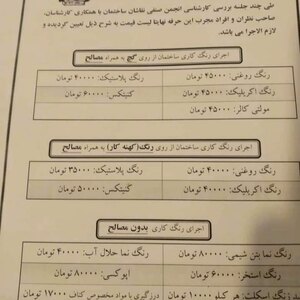 طی چند جلسه بررسی کارشناسی انجمن صنفی نقاشان ساختمان با همکاری کارشناسان،
صاحب نظران و افراد مجرب این حرفه نهایتا لیست قیمت به شرح ذیل تعیین گردیده و
لازم الاجرا می باشد.
اجرای رنگ کاری ساختمان از روی گچ به همراه مصالح
رنگ روغنی: ۴۵۰۰۰ تومان
رنگ پلاستیک: ۴۰۰۰۰ تومان
رنگ اکریلیک: ۴۵۰۰۰ تومان
کنیتکس: ۶۰۰۰۰ تومان
مولتی کالر: ۴۵۰۰۰ تومان
اجرای رنگ کاری ساختمان از روی رنگ(کهنه کار) به همراه مصالح
رنگ روغنی: ۴۰۰۰۰ تومان
رنگ پلاستیک: ۳۵۰۰۰ تومان
رنگ اکریلیک: ۴۰۰۰۰ تومان
کنیتکس: ۵۰۰۰۰ تومان
اجرای رنگ کاری بدون مصالح
رنگ نما بتن شیمی: ۸۰۰۰۰ تومان
رنگ نما حلال آب: ۴۰۰۰۰ تومان
رنگ استخر: ۶۰۰۰۰ تومان
اپوکسی: ۸۰۰۰۰ تومان
رنگ اسکلت: هر کیلو ۱۰۰۰۰ تومان
درزگیری با مواد مخصوص کناف ۱۷۰۰۰ تومان